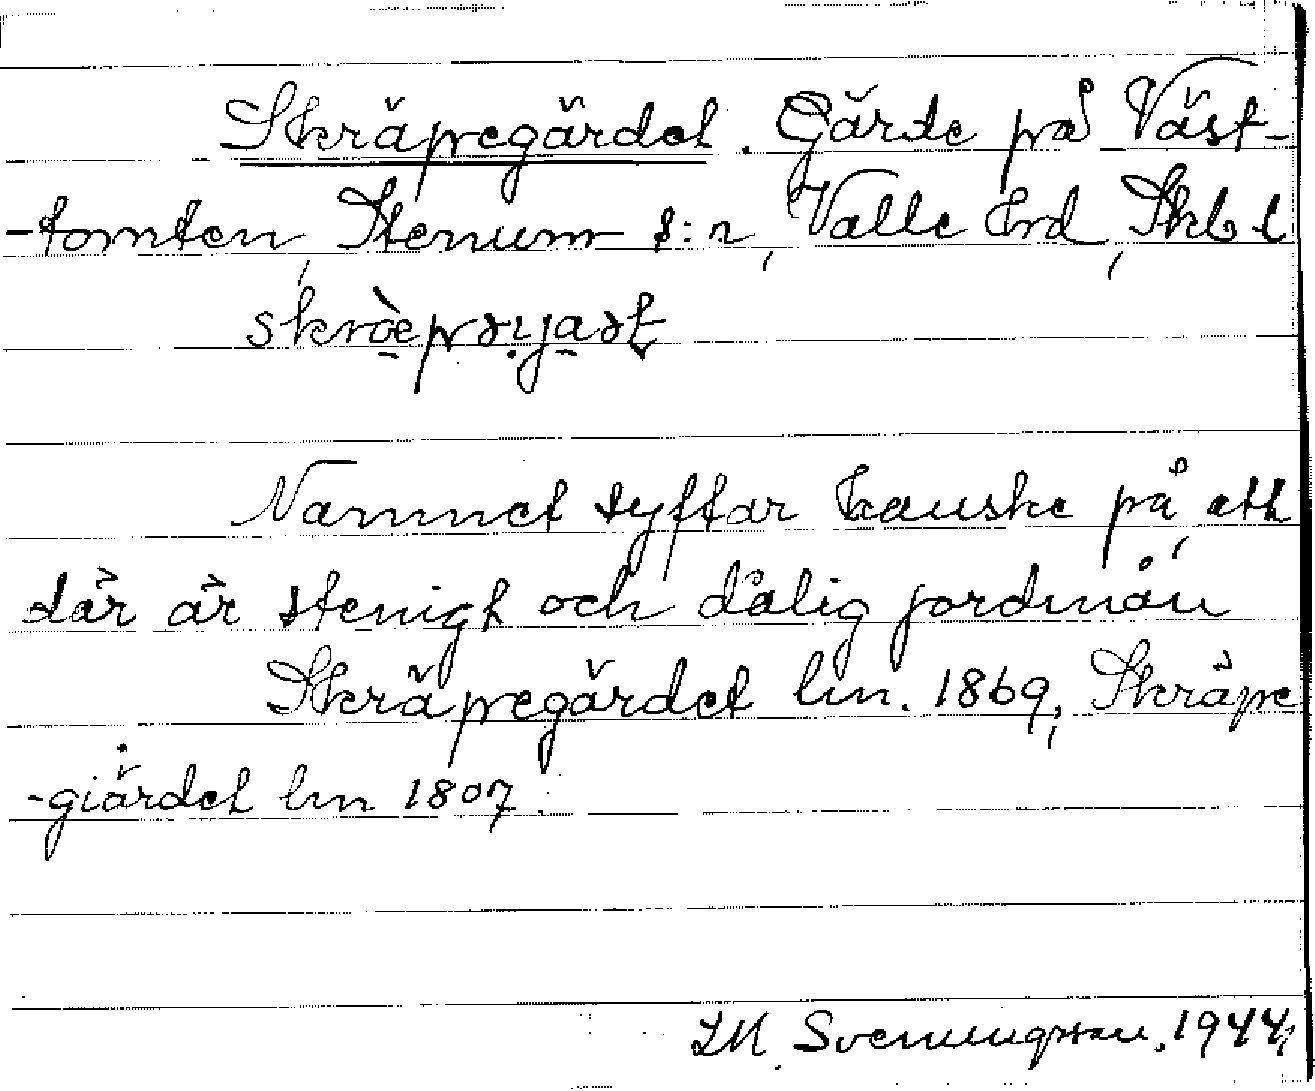 Skräpegärdet. Gärde på Väst-
-tomten, Stenum s:n, Valle hrd, Skb l
Namnet syftar kanske på, att
där är stenigt och dålig jordmån
Skräpegärdet lm. 1869, Skräpe
-giärdet lm 1807.
Svenungsson. 1944